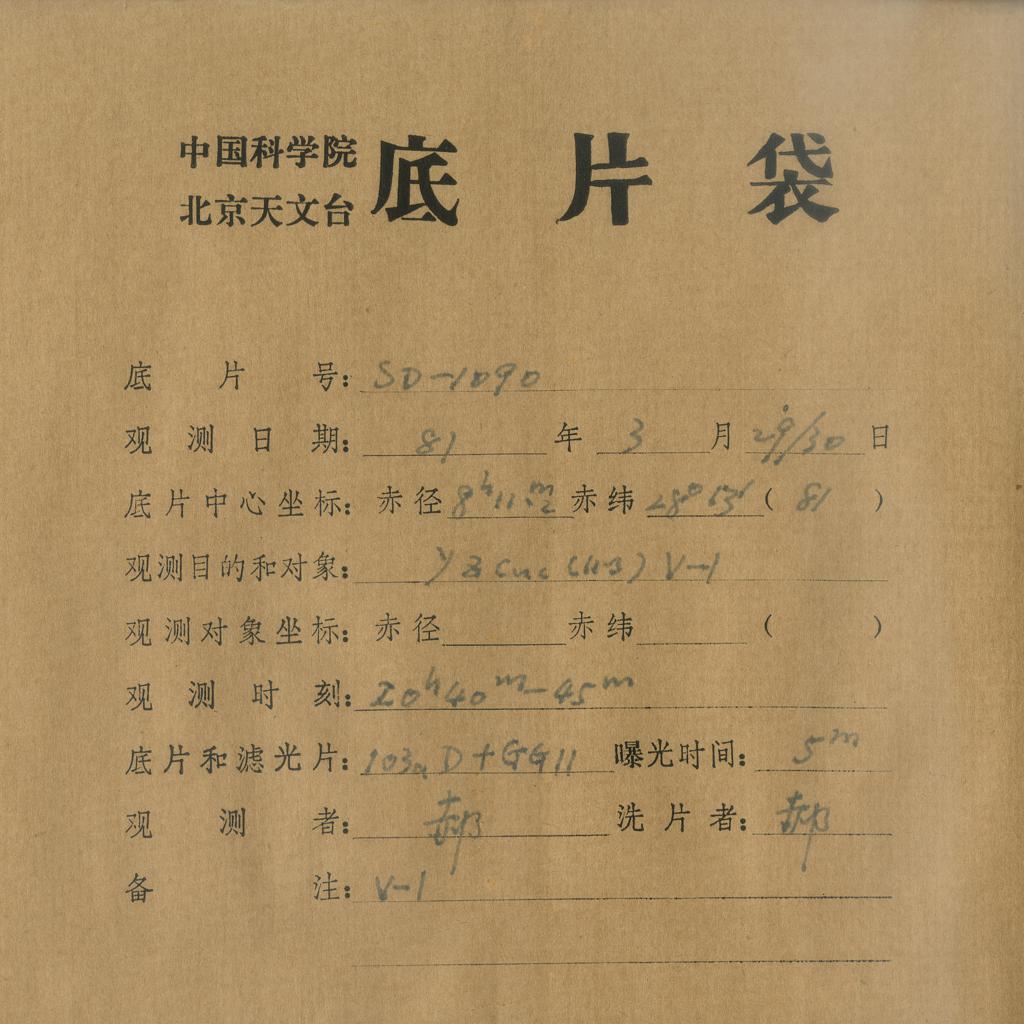 中国科学院
北京天文台
底片袋
底片号: SD-1090
观测日期: 81 年 3 月 29/30 日
底片中心坐标: 赤径 8h11m.2 赤纬 28°53′ ( 81 )
观测目的和对象: YZ Cnc (113) V-1
观测对象坐标: 赤径 赤纬 ( )
观测时刻: 20h40m-45m
底片和滤光片: 103aD+GG11 曝光时间: 5m
观测者: 郝 洗片者: 郝
备注: V-1